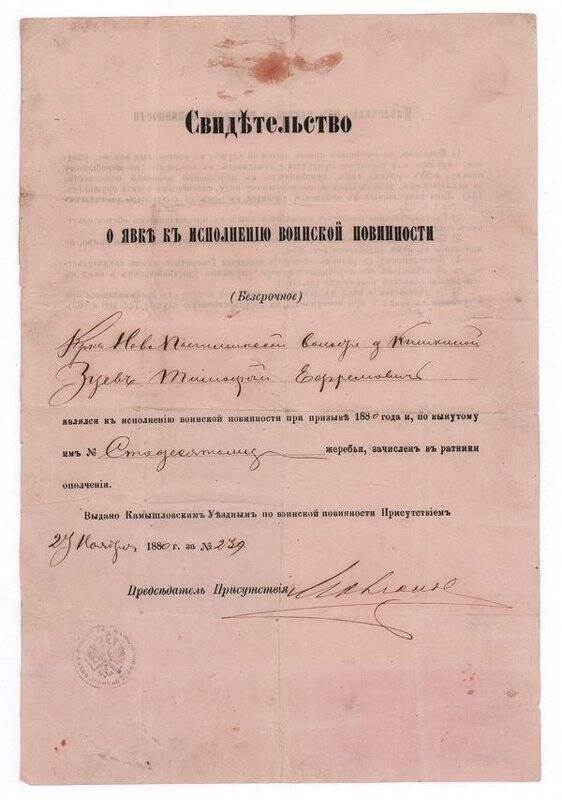 Свидѣтельство
О ЯВКѢ КЪ ИСПОЛНЕНІЮ ВОИНСКОЙ ПОВИННОСТИ
(Безсрочное)
Кр. Ново Волости д
Зуевъ Тимофей Ефремовичъ
являлся къ исполненію воинской повинности при призывѣ 1880 года и, по вынутому
имъ № Стодесятому жеребья, зачисленъ въ ратники
ополченія.
Выдано Камышловскимъ Уѣзднымъ по воинской повинности Присутствіемъ
27 Ноября 1880 г. за № 239
Предсѣдатель Присутствія